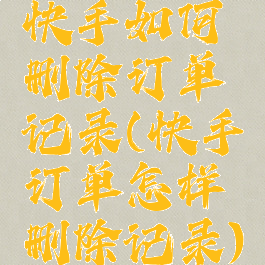 快手如何
删除订单
记录(快手
订单怎样
删除记录)